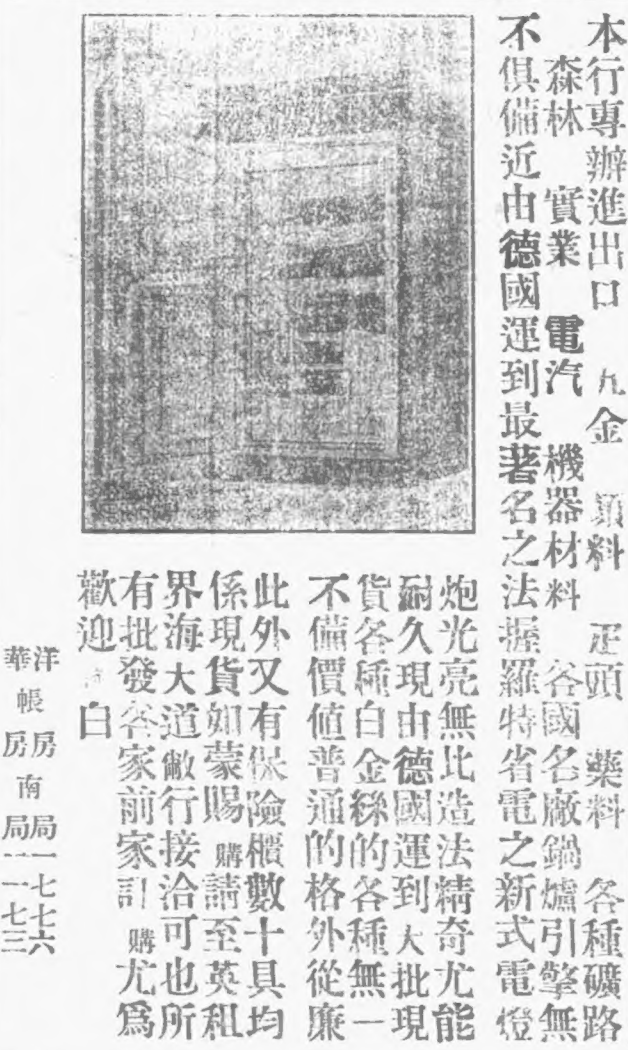 本行專辦進出口 九金 顏料 疋頭 藥料 各種礦路
森林 實業 電汽 機器材料 各國名廠鍋爐引擎無
不俱備近由德國運到最著名之法握羅特省電之新式電燈
炮光亮無比造法精奇尤能
耐久現由德國運到大批現
貨各種白金絲的各種無一
不備價値普通的格外從廉
此外又有保險櫃數十具均
係現貨如蒙賜購請至英租
界海大道敝行接洽可也所
有批發各家前家訂購尤爲
歡迎 白
洋房南局一七七六
華帳房南局一一七三